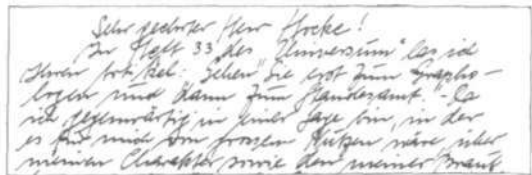 Sehr geehrter Herr Hocke!
In Heft 33 des "Universum" las ich
Ihren Artikel: "Gehen Sie erst zum Grapho-
logen und dann zum Standesamt". Da
ich gegenwärtig in einer Lage bin, in der
es für mich von grossem Nutzen wäre, über
meinen Charakter sowie den meiner Braut